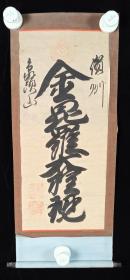 讃州
金毘羅権現
象頭山